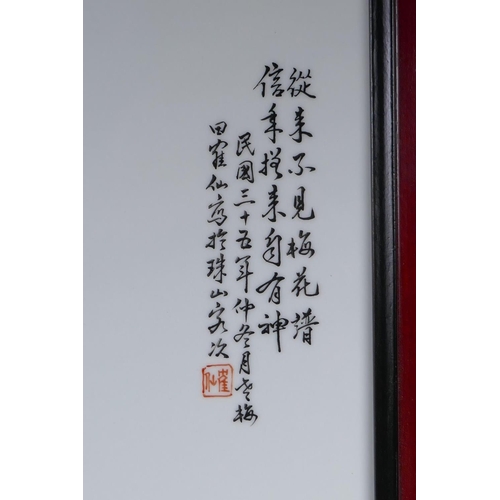 從来不見梅花譜
信手拈来自有神
民國三十五年仲冬月老梅
田隺仙寫於珠山客次
隺仙